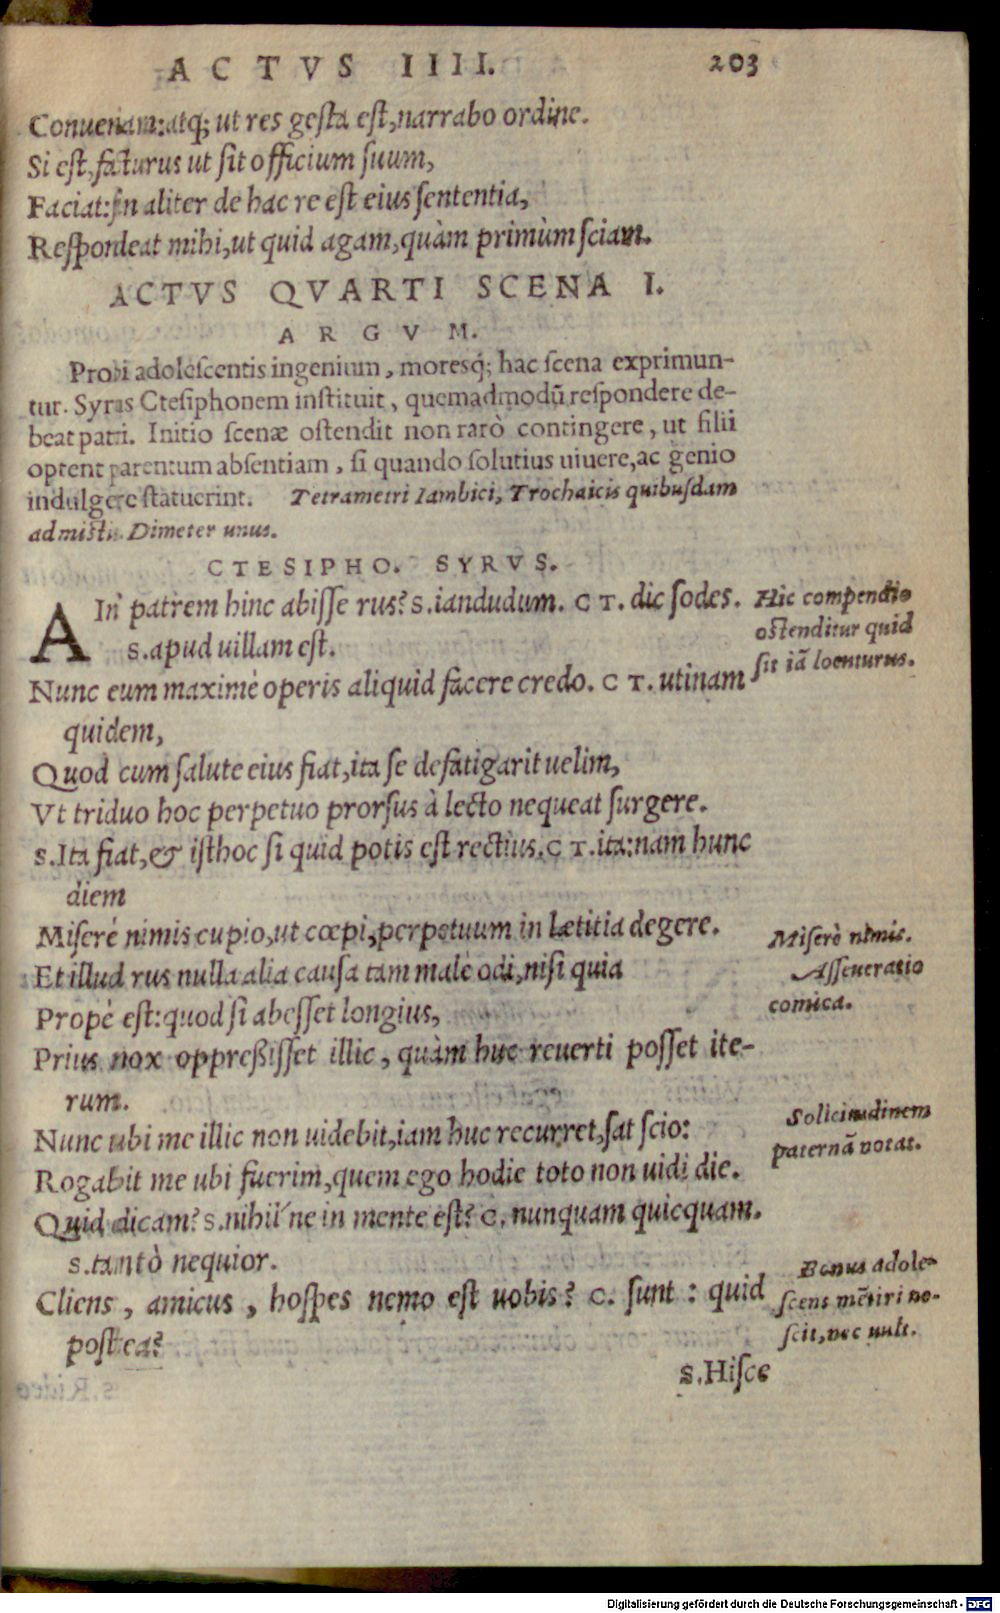 ACTVS IIII. 203
Conueniam:atq́; ut res gesta est,narrabo ordine.
Si est,facturus ut sit officium suum,
Faciat:sin aliter de hac re est eius sententia,
Respondeat mihi,ut quid agam,quàm primùm sciam.
ACTVS QVARTI SCENA I.
ARGVM.
Probi adolescentis ingenium, moresq́; hac scena exprimun-
tur. Syrus Ctesiphonem instituit, quemadmodũ respondere de-
beat patri. Initio scenæ ostendit non rarò contingere, ut filii
optent parentum absentiam, si quando solutius uiuere,ac genio
indulgere statuerint. Tetrametri Iambici, Trochaicis quibusdam
admistis. Dimeter unus.
CTESIPHO. SYRVS.
AIn patrem hinc abisse rus? S.iandudum. CT. dic sodes.
S.apud uillam est.
Nunc eum maximè operis aliquid facere credo. CT. utinam
quidem,
Quod cum salute eius fiat,ita se defatigarit uelim,
Vt triduo hoc perpetuo prorsus à lecto nequeat surgere.
S.Ita fiat,& isthoc si quid potis est rectius.CT.ita:nam hunc
diem
Miserè nimis cupio,ut cœpi,perpetuum in lætitia degere.
Et illud rus nulla alia causa tam malè odi,nisi quia
Propè est:quod si abesset longius,
Prius nox oppreßisset illic, quàm huc reuerti posset ite-
rum.
Nunc ubi me illic non uidebit,iam huc recurret,sat scio:
Rogabit me ubi fuerim,quem ego hodie toto non uidi die.
Quid dicam? S.nihil´ne in mente est? C. nunquam quicquam.
S.tantò nequior.
Cliens, amicus, hospes nemo est uobis? C. sunt: quid
postea?
S.Hisce
Hic compendio
ostenditur quid
sit iã locuturus.
Miserè nimis.
Asseueratio
comica.
Solicitudinem
paternã notat.
Bonus adole-
scens mẽtiri ne-
scit,nec uult.
Digitalisierung gefördert durch die Deutsche Forschungsgemeinschaft - DFG